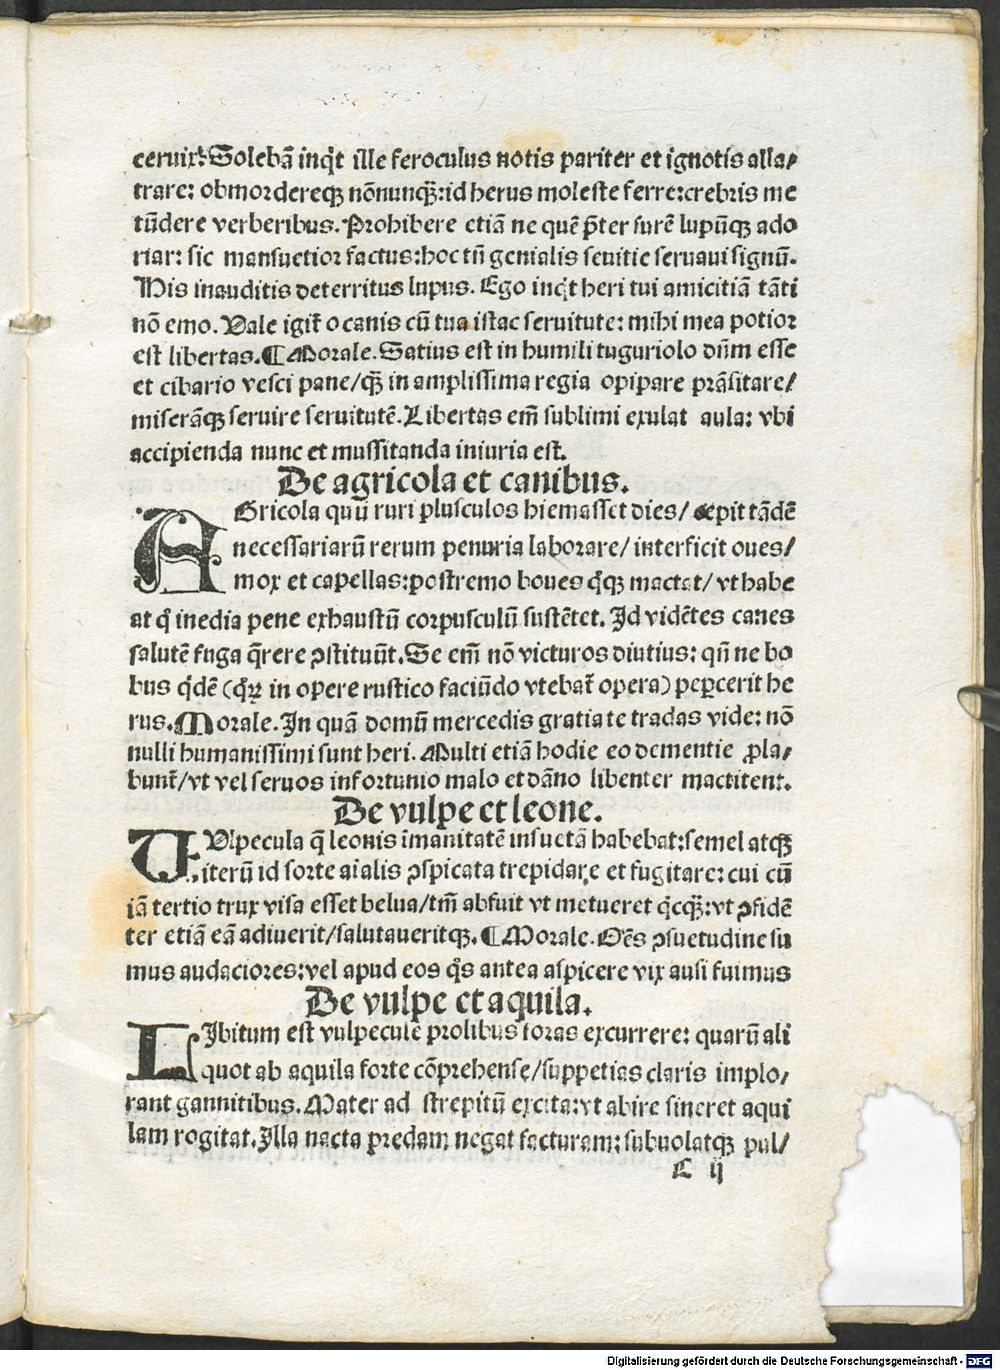 ceruix. Solebā inqͥt ille feroculus notis pariter et ignotis alla/
trare: obmordereqꝫ nōnunqꝫ: id herus moleste ferre: crebris me
tūdere verberibus. Prohibere etiā ne quē p̄ter furē lupūqꝫ ado
riar: sic mansuetior factus: hoc tn̄ genialis seuitie seruaui signū.
His inauditis deterritus lupus. Ego inqͥt heri tui amicitiā tāti
nō emo. Vale igit̄ o canis cū tua istac seruitute: mihi mea potior
est libertas. ¶ Morale. Satius est in humili tuguriolo dūm esse
et cibario vesci pane/ qꝫ̄ in amplissima regia opipare prāsitare/
miserāqꝫ seruire seruitutē. Libertas em̄ sublimi exulat aula: vbi
accipienda nunc et mussitanda iniuria est.
De agricola et canibus.
AGricola quū ruri plusculos hiemasset dies/ cepit tādē
necessariarū rerum penuria laborare/ interficit oues/
mox et capellas: postremo boues qͦqꝫ mactat/ vt habe
at qͦ inedia pene exhaustū corpusculū sustētet. Id vidētes canes
salutē fuga q̄rere ꝯstituūt. Se em̄ nō victuros diutius: qn̄ ne bo
bus qͥdē (qͦꝝ in opere rustico faciūdo vtebat̄ opera) peꝑcerit he
rus. Morale. In quā domū mercedis gratia te tradas vide: nō
nulli humanissimi sunt heri. Multi etiā hodie eo dementie ꝓla/
bunt̄/ vt vel seruos infortunio malo et dāno libenter mactitent.
De vulpe et leone.
VUlpecula q̄ leonis īmanitatē insuetā habebat: semel atqꝫ
iterū id forte aīalis ꝯspicata trepidare et fugitare: cui cū
iā tertio trux visa esset belua/ tm̄ abfuit vt metueret qͥcqꝫ: vt ꝯfidē
ter etiā eā adiuerit/ salutaueritqꝫ. ¶ Morale. Oēs ꝯsuetudine su
mus audaciores: vel apud eos qͦs antea aspicere vix ausi fuimus
De vulpe et aquila.
LIbitum est vulpecule prolibus foras excurrere: quarū ali
quot ab aquila forte cōprehense/ suppetias claris implo/
rant gannitibus. Mater ad strepitū excita: vt abire sineret aqui
lam rogitat. Illa nacta predam negat facturam: subuolatqꝫ pul/
C ij
Digitalisierung gefördert durch die Deutsche Forschungsgemeinschaft - DFG